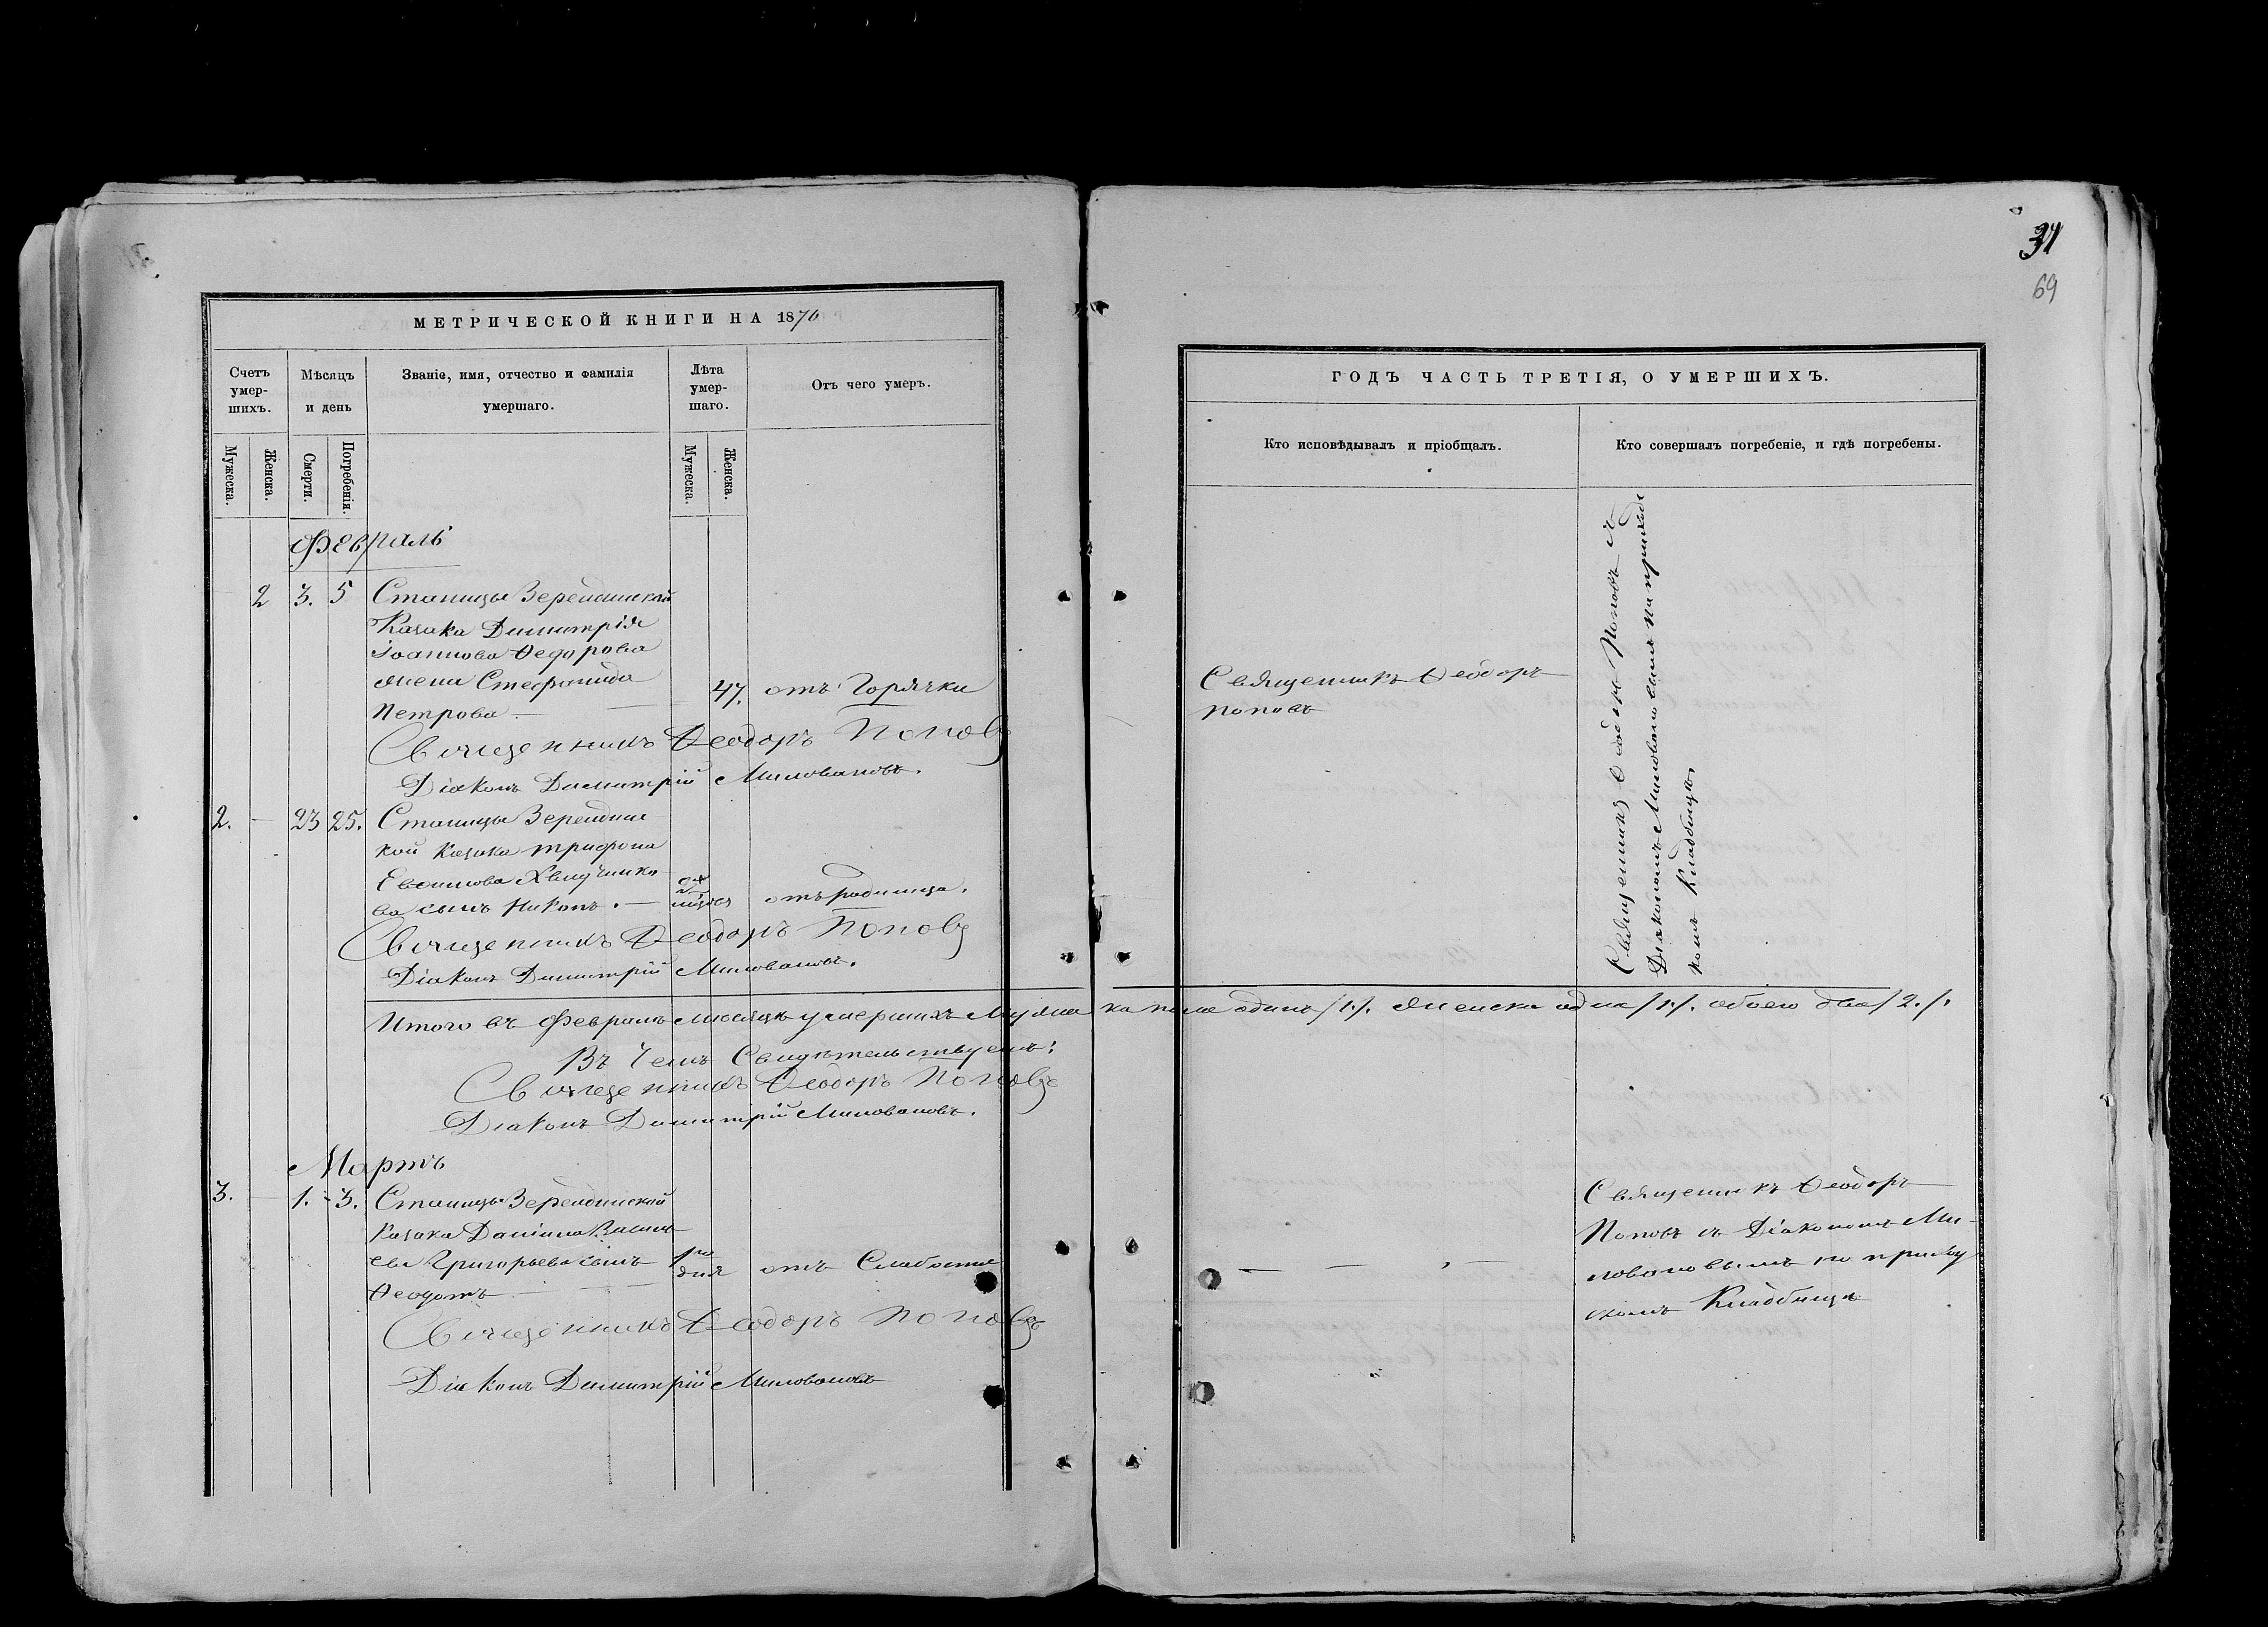 31
69
МЕТРИЧЕСКОЙ КНИГИ НА 1876
Счетъ умер-шихъ.
Мѣсяцъ и день
Званіе, имя, отчество и фамилія умершаго.
Лѣта умер-шаго.
Отъ чего умеръ.
Мужеска.
Женска.
Смерти.
Погребенія.
Мужеска.
Женска.
Февраль
2 3. 5 Станицы Зерендинской
Казака Димитрія
Іоаннова Ѳедорова
жена Стефанида
47. отъ Горячки
Петрова
Священникъ Ѳеодоръ Поповъ
Діаконъ Димитрій Миловановъ.
2. — 23 25. Станицы Зерендинс
кой Казака Трифона
ва сынъ Никонъ. —
отъ родимца.
Священникъ Ѳеодоръ Поповъ
Діаконъ Димитрій Миловановъ.
Итого въ Февралѣ мѣсяцѣ умершихъ Мужеска пола одинъ /1./. Женска одна /1./. обоего два /2./.
Въ чемъ Свидѣтельствуемъ:
Священникъ Ѳеодоръ Поповъ
Діаконъ Димитрій Миловановъ.
Мартъ
3. — 1. 3. Станицы Зерендинской
Казака Даніила Василь
ева Григорьева сынъ
1го дня отъ Слабости
Ѳеодотъ
Священникъ Ѳеодоръ Поповъ
Діаконъ Димитрій Миловановъ
ГОДЪ ЧАСТЬ ТРЕТІЯ, О УМЕРШИХЪ.
Кто исповѣдывалъ и пріобщалъ.
Кто совершалъ погребеніе, и гдѣ погребены.
Священникъ Ѳеодоръ
Поповъ
Священникъ Ѳеодоръ Поповъ съ
Діакономъ Миловановымъ на приход
комъ Кладбищѣ.
Священникъ Ѳеодоръ
Поповъ съ Діакономъ Ми-
ловановымъ на приход
скомъ Кладбищѣ